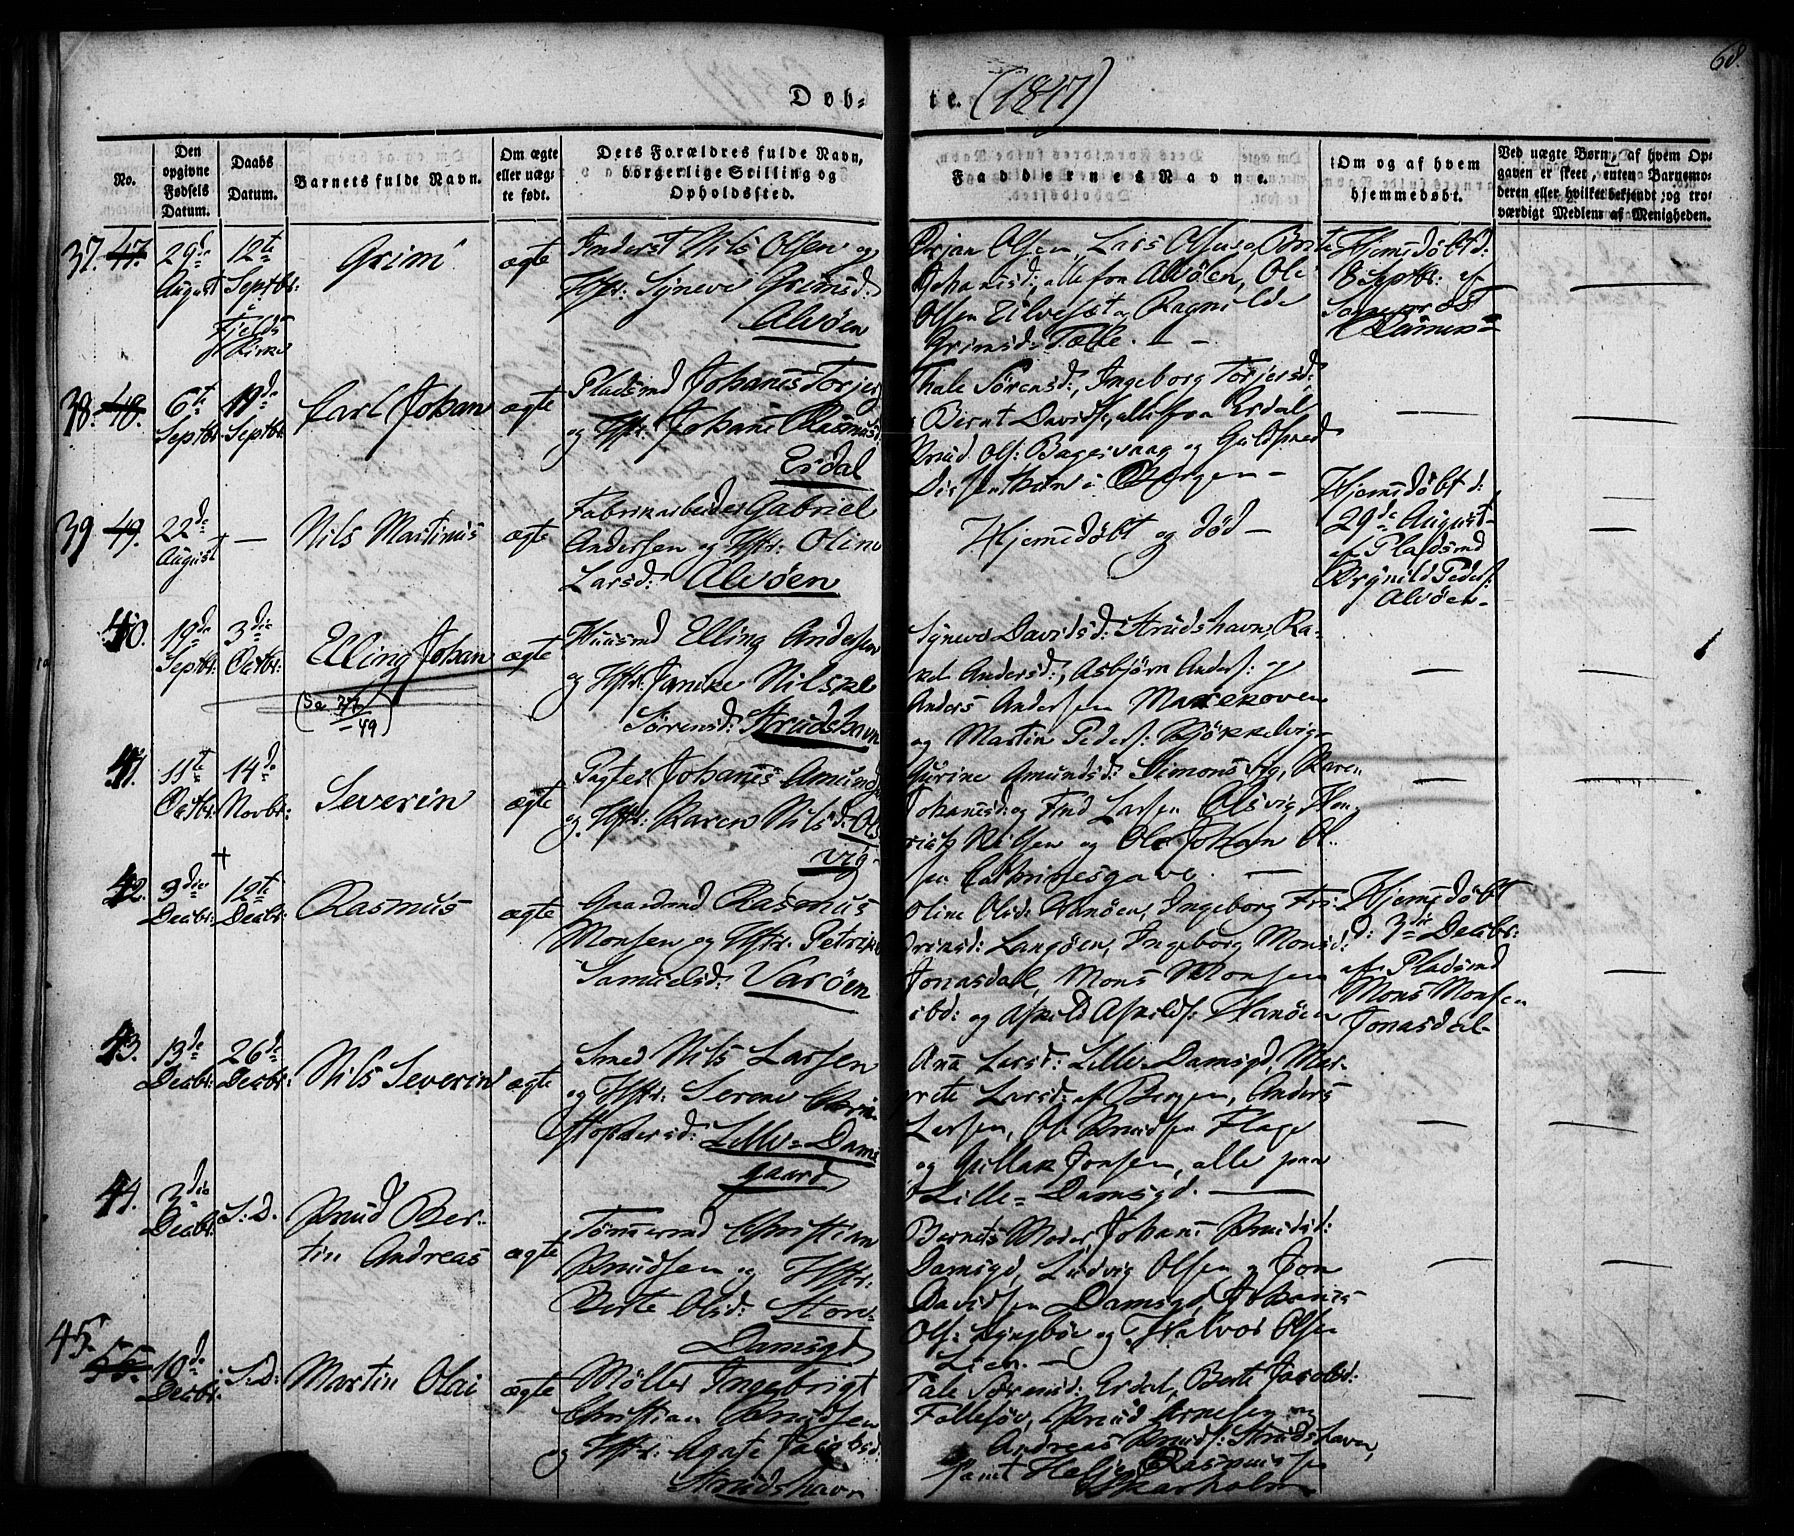 68.
Døb-
te. (1847)
No.
Den opgivne Fødsels Datum.
Daabs Datum.
Barnets fulde Navn.
Om ægte eller uægte født.
Dets Forældres fulde Navn, borgerlige Stilling og Opholdssted.
Faddernes Navne.
Om og af hvem hjemmedøbt.
Ved uægte Børn, af hvem Opgaven er skeet, enten Barnemoderen eller hvilket bekjendt og troværdigt Medlem af Menigheden.
37. 47.
29de August
12te Septbr:
Fjelds Kirke
Grim
ægte
Nils Olsen og
Hstr: Syneve Grimsd:
Alvøen
Ørjan Olsen, Lars Olsen, Brite
Johanisd: alle fra Alvøen, Ole
Olsen og Ragnilde
Grimsd:
Hjemdøbt d:
8 Septbr: af
38. 48.
6te Septbr
19de Septbr:
Carl Johan
ægte
Pladsmd Johanes Torjer
og Hstr: Johane Rasmusd:
Erdal
Thale Sørensd:, Ingeborg Torjersd:
Bernt Davids: alle fra Erdal
Knud Ols: og
i Bergen –
39 49.
22de August
—
Nils Martinus
ægte
Fabrikarbeider Gabriel
Andersen og Hstr: Oline
Larsd: Alvøen
Hjemmedøbt og død –
Hjemdøbt d:
29de August
af Pladsmd
Brynild Peders:
Alvøen –
40.
19de Septbr:
3die Octbr:
Elling Johan
(Se 37/49)
ægte
Huusmd Elling Andersen
og Hstr: Janike Nilske
Sørensd: Strudshavn
Syneve Davidsd: Strudshavn, Ra-
kel Andersd:, Asbjørn Anders: og
Anders Andersen
og Martin Peders: Bjøkkelvig –
41.
11te Octbr:
14de Novbr:
Severin
ægte
Pagter Johanes Amunds
og Hstr: Karen Nilsd: Ols
vig –
Gurine Amundsd: Simonsvig, Karen
Johanisd: og Lars Larsen Olsvig, Hen
rich Nilsen og Ole Johan Ol-
sen Cathrinesgave. —
42.
3die Decbr:
12te Decbr:
Rasmus
ægte
Gaardmd Rasmus
Monsen og Hstr: Petrike
Samuelsd: Varøen
Oline Olsd: Hanøen, Ingeborg Fri-
drinsd: Langøen, Ingeborg Monsd:
Jonasdal, Mons Monsen
ibd: og Askild Askilds: Hanøen
Hjemdøbt
d: 3die Decbr:
af Pladsmd
Mons Monsen
Jonasdal –
43.
13de Decbr:
26de Decbr:
Nils Severin
ægte
Smed Nils Larsen
og Hstr: Serene Chri
stophersd: Lille-Dams
gaard
Ana Larsd: Lille Damsgd, Mar-
grete Larsd: af Bergen, Anders
Larsen, Ole Knudsen Flage
og Gullak Jonsen, alle paa
Lille-Damsgd. —
44.
3die Decbr:
S: D.
Knud Ber-
tin Andreas
ægte
Tømmermd Christian
Knudsen og Hstr:
Berte Olsd: Store-
Damsgd
Barnets Moder, Johane Knudsd:
Damsgd, Ludvig Olsen og Jon
Davidsen Damsgd, Johanes
Ols: Lynsbøe og Halvor Olsen
Lien. —
45.
55.
10de Decbr:
S: D:
Martin Olai
ægte
Møller Ingebrigt
Christian Knudsen
og Hstr: Agate Jacobsd:
Strudshavn
Tale Sørensd: Erdal, Berte Jacobsd:
Follesøe, Knud Arnesen og
Andreas Knuds: Strudshavn,
samt Helje Rasmussen
Skarholm